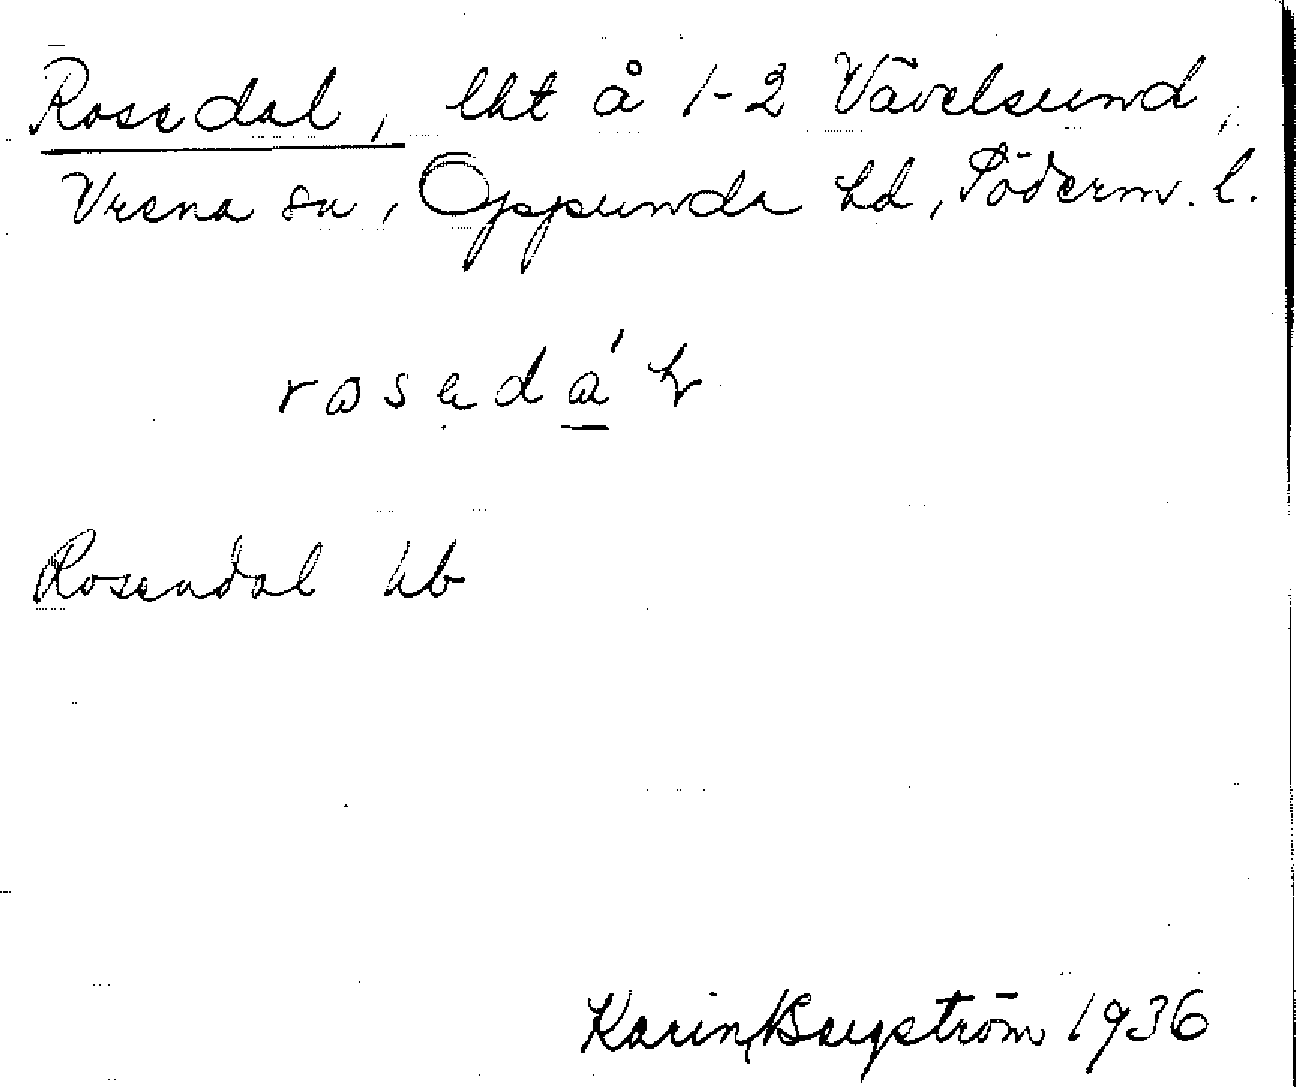 Rosedal, lht å 1-2 Vävelsund,
Vrena sn, Oppunda hd, Söderm. l.
rosedá
Rosendal hb
Karin Bergström 1936